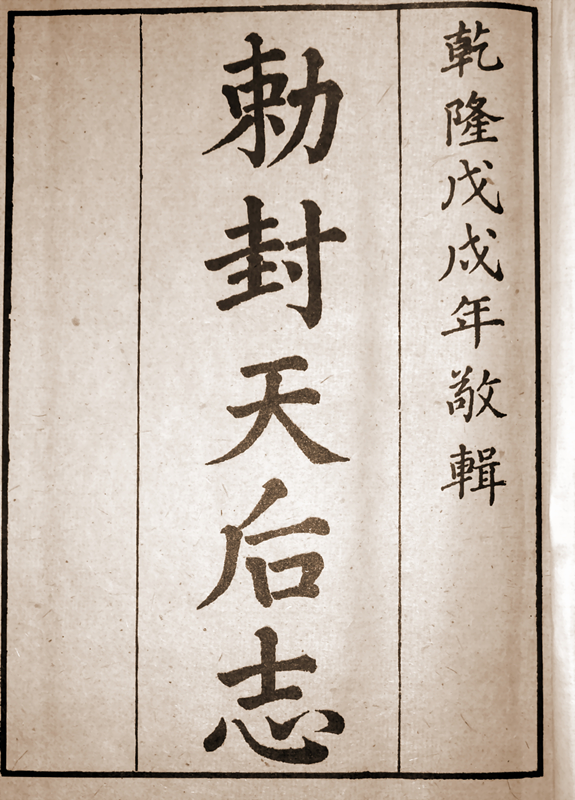 乾隆戊戌年敬輯
勅封天后志